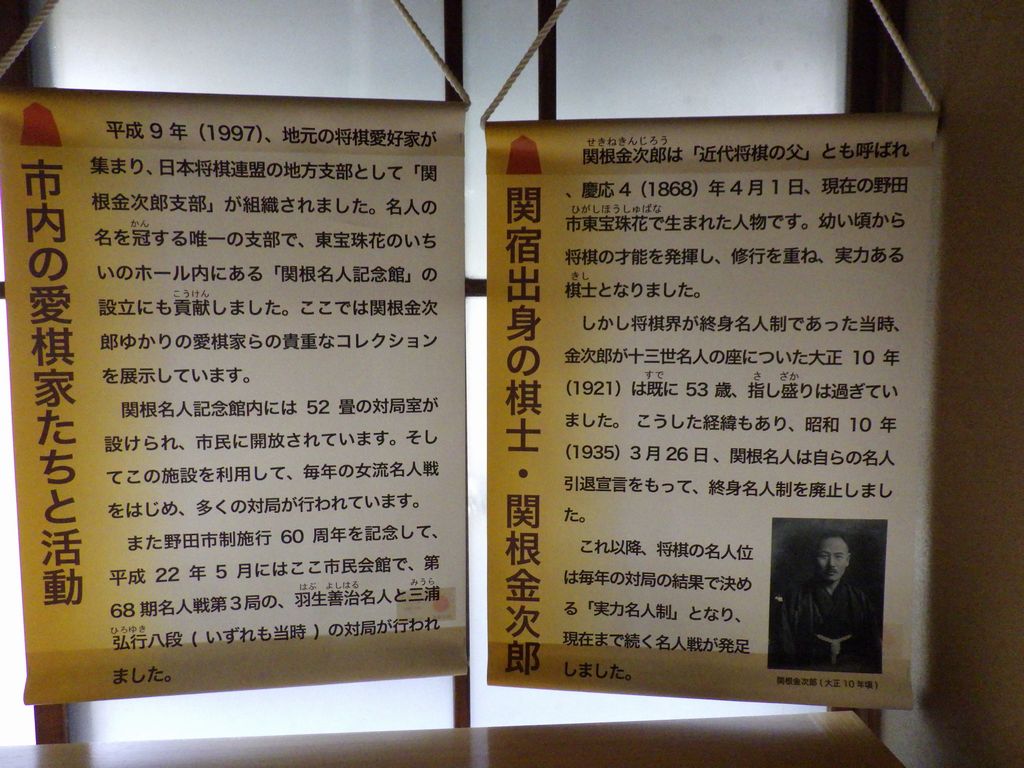 関宿出身の棋士・関根金次郎
せきねきんじろう
関根金次郎は「近代将棋の父」とも呼ばれ
、慶応4(1868)年4月1日、現在の野田
ひがしほうしゅばな
市東宝珠花で生まれた人物です。幼い頃から
将棋の才能を発揮し、修行を重ね、実力ある
きし
棋士となりました。
しかし将棋界が終身名人制であった当時、
金次郎が十三世名人の座についた大正 10 年
すで さ ざか
(1921)は既に 53 歳、指し盛りは過ぎてい
ました。 こうした経緯もあり、昭和 10 年
(1935)3月26日、関根名人は自らの名人
引退宣言をもって、終身名人制を廃止しまし
た。
これ以降、将棋の名人位
は毎年の対局の結果で決め
る「実力名人制」となり、
現在まで続く名人戦が発足
しました。
関根金次郎(大正10年頃)
市内の愛棋家たちと活動
平成9年(1997)、地元の将棋愛好家が
集まり、日本将棋連盟の地方支部として「関
根金次郎支部」が組織されました。名人の
かん
名を冠する唯一の支部で、東宝珠花のいち
いのホール内にある「関根名人記念館」の
こうけん
設立にも貢献しました。ここでは関根金次
郎ゆかりの愛棋家らの貴重なコレクション
を展示しています。
関根名人記念館内には 52 畳の対局室が
設けられ、市民に開放されています。そし
てこの施設を利用して、毎年の女流名人戦
をはじめ、多くの対局が行われています。
また野田市制施行 60 周年を記念して、
平成 22 年5月にはここ市民会館で、第
はぶ よしはる みうら
68期名人戦第3局の、羽生善治名人と三浦
ひろゆき
弘行八段(いずれも当時)の対局が行われ
ました。